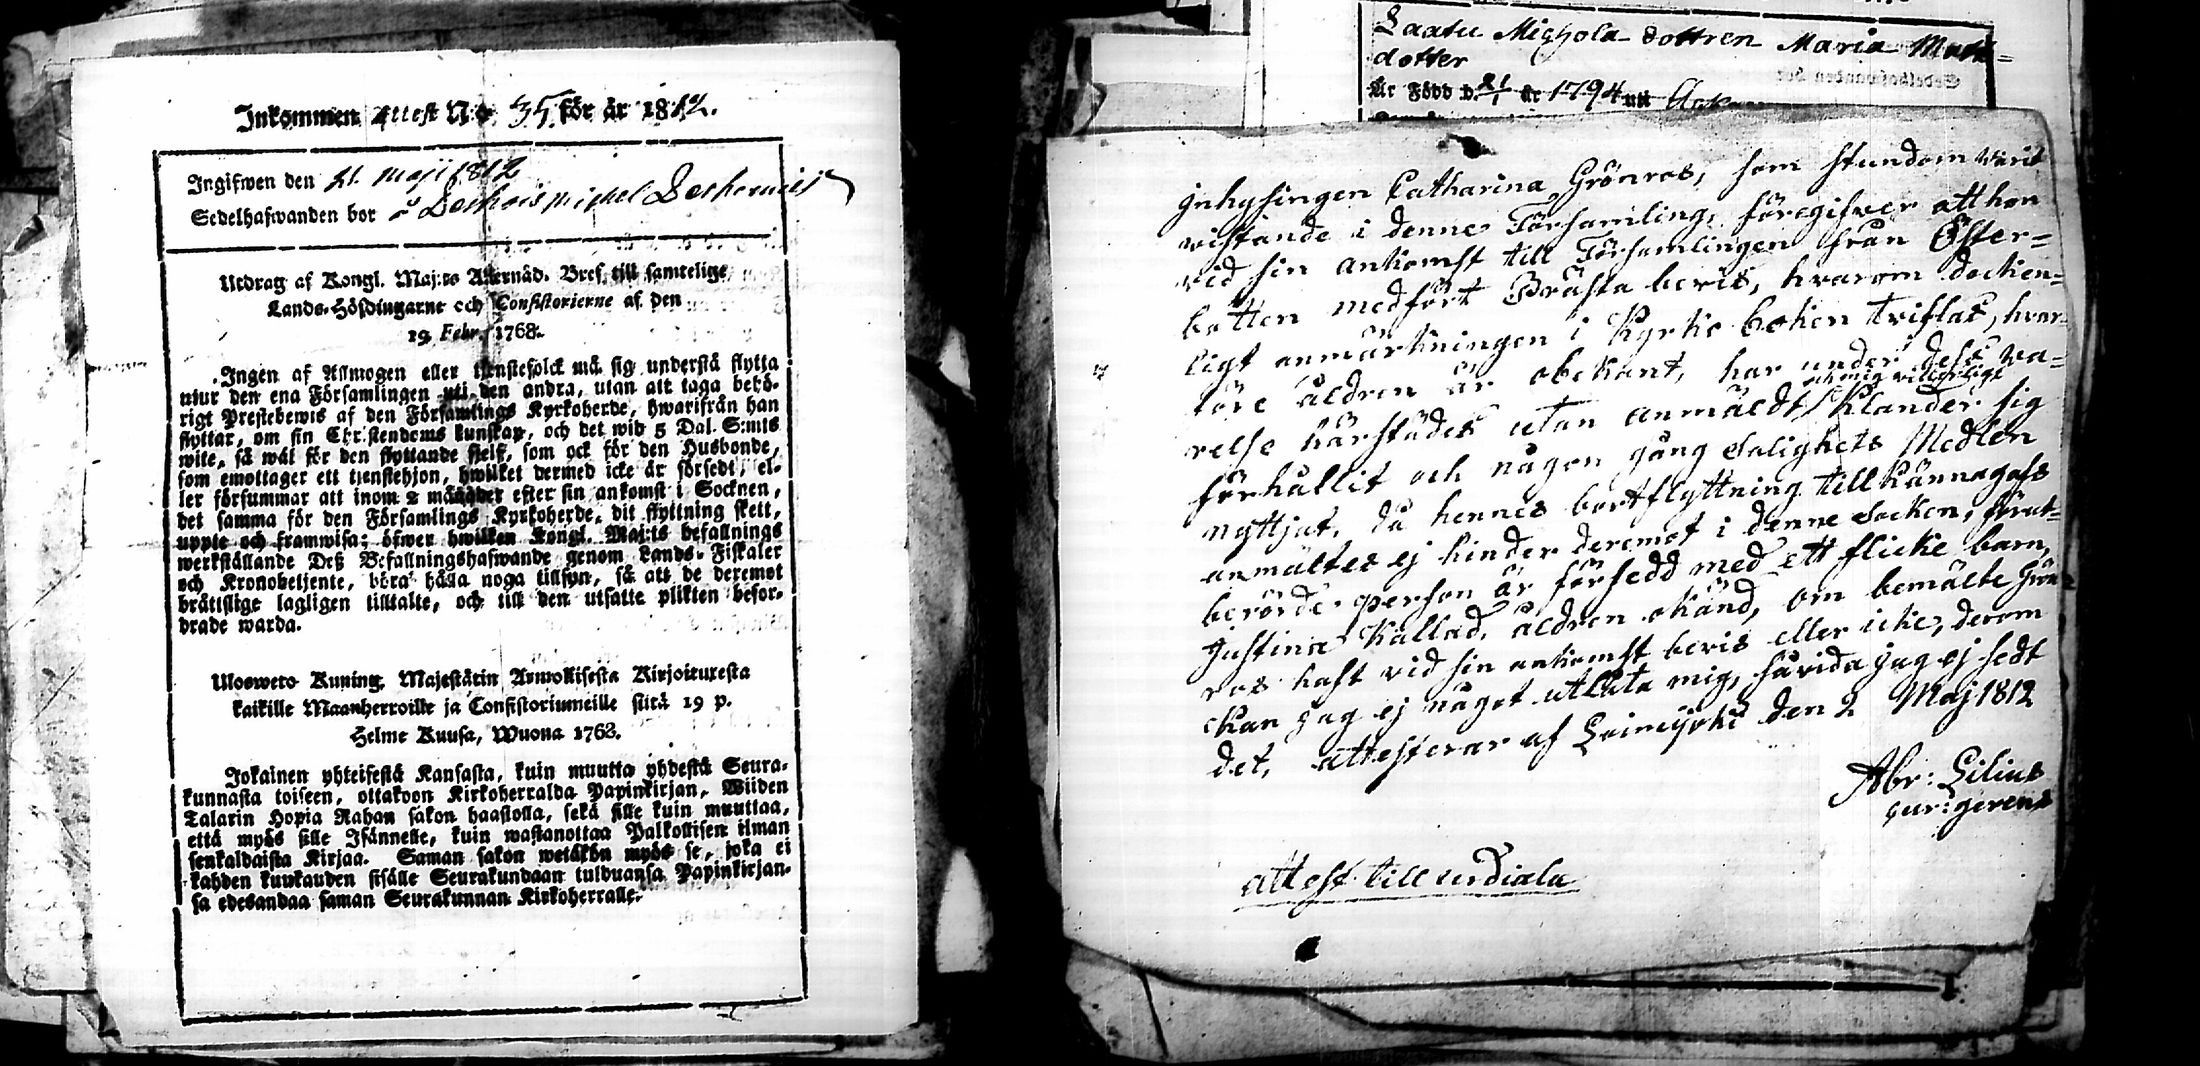 Inkommen attest N:o 35 för år 1812.
Ingifwen den 21. maji 1812
Sedelhafwanden bor å
Utdrag af Kongl. Maj:ts Allernåd. Bref till samtelige
Lands-Höfdingarne och Consistorierne af den
19 Febr. 1768.
Ingen af Allmogen eller tjenstefolck må sig understå flytta
utur den ena Församlingen uti den andra, utan att taga behö-
rigt Prestebewis af den Församlings Kyrkoherde, hwarifrån han
flyttar, om sin Christendoms kunskap, och det wid 5 Dal. S:mts
wite, så wäl för den flyttande sielf, som ock för den Husbonde,
som emottager ett tjenstehjon, hwilket dermed icke är försedt, el-
ler försummar att inom 2 månader efter sin ankomst i Socknen,
det samma för den Församlings Kyrkoherde, dit flyttning skett,
uppte och framwisa; öfwer hwilken Kongl. Maj:ts befallnings
werkställande Deß Befallningshafwande genom Lands-Fiskaler
och Kronobetjente, böra hålla noga tillsyn, så att de deremot
bråttslige lagligen tilltalte, och till den utsatte plikten befor-
drade warda.
Ulosweto Kuning. Majestätin Armollisesta Kirjoituxesta
kaikille Maanherroille ja Consistoriumeille siitä 19 p.
Helme Kuusa, Wuona 1768.
Jokainen yhteisestä Kansasta, kuin muutta yhdestä Seura-
kunnasta toiseen, ottakoon Kirkoherralda Papinkirjan, Wiiden
Talarin Hopia Rahan sakon haastolla, sekä sille kuin muuttaa,
että myös sille Isännelle, kuin wastanottaa Palkollisen ilman
senkaldaista Kirjaa. Saman sakon wetäkön myös se, joka ei
kahden kuukauden sisälle Seurakundaan tulduansa Papinkirjan-
sa edesandaa saman Seurakunnan Kirkoherralle.
Laatu Mighola dottren Maria Matts=
dotter
Är Född d. 21/1 år 1794 uti
Inhysingen Catharina Grönros, som stundom warit
wistande i denne Församling, föregifwer att hon
vid sin ankomst till Församlingen från Öster=
botten medfört Prästa bevis, hvarom dock en-
ligt anmärkningen i Kyrko boken tviflas, hvar-
före åldren är obekant, har under dess va=
relse härstädes utan anmäldt Klander sig
förhållit och någon gång Salighets Medlen
nyttjat, då hennes bortflyttning tillkännagafs
anmältes ej hinder deremot i denne Socken, förut=
berörde person är försedd med ett flicke barn,
Justina Kallad, åldren okänd, om bemälte Grön
ros haft vid sin ankomst bevis eller icke, derom
kan jag ej något utlåta mig, såvida jag ej sedt
det, attesterar af Loimijoki den 2 Maj 1812
Abr: Lilius
cur: gerens
attest till urdiala